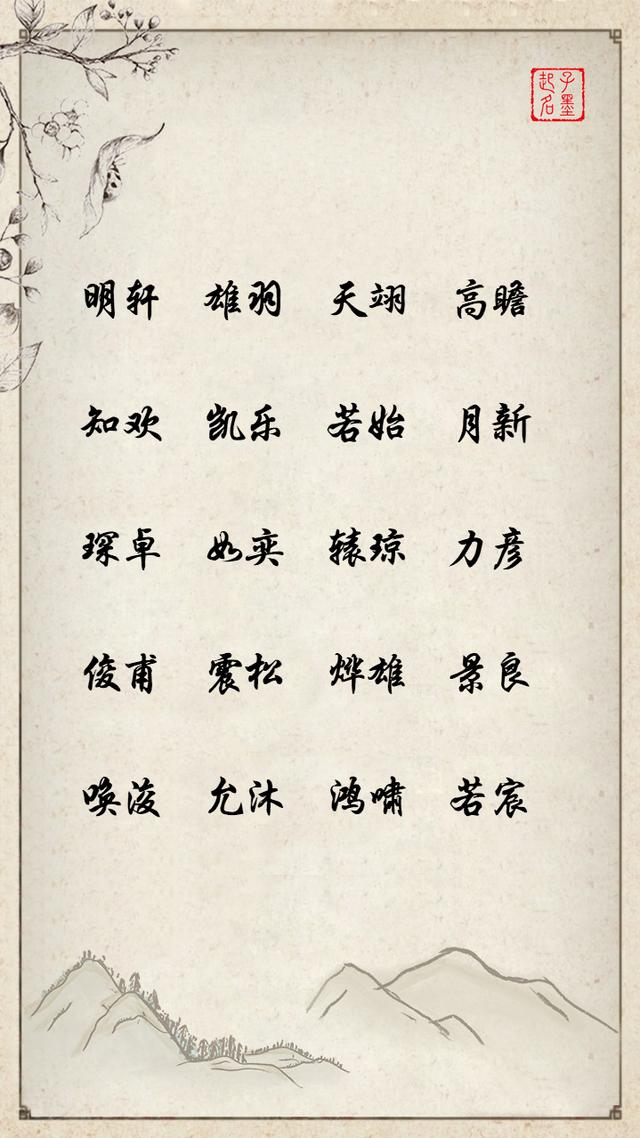 子墨
起名
明轩 雄羽 天翊 高瞻
知欢 凯乐 若始 月新
琛卓 如奕 辕琼 力彦
俊甫 震松 烨雄 景良
唤浚 允沐 鸿啸 若宸